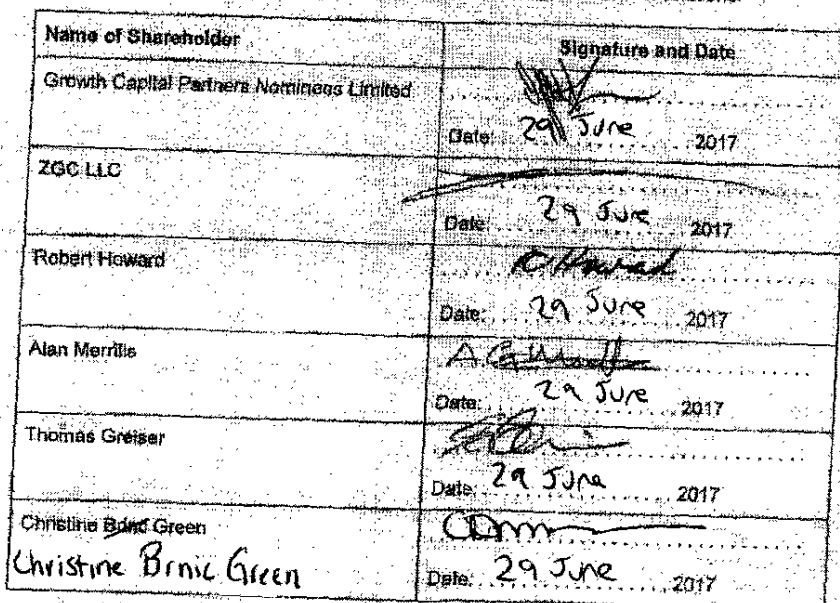 Name of Shareholder
Signature and Date
Growth Capital Partners Nominees Limited
Date: 29 June 2017
ZGC LLC
Date: 29 June 2017
Robert Howard
R Howard
Date: 29 June 2017
Alan Merrills
Date: 29 June 2017
Thomas Greiser
Date: 29 June 2017
Christine Bond Green
Christine Brnic Green
Date: 29 June 2017